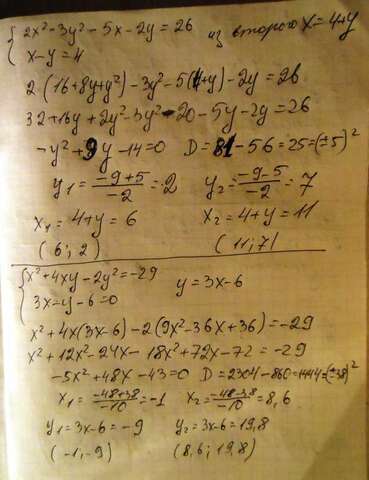 { 2x²-3y²-5x-2y=26 из второго x=4+y
{ x-y=4
2(16+8y+y²)-3y²-5(4+y)-2y=26
32+16y+2y²-3y²-20-5y-2y=26
-y²+9y-14=0 D=81-56=25=(±5)²
y₁=(-9+5)/(-2)=2 y₂=(-9-5)/(-2)=7
x₁=4+y=6 x₂=4+y=11
(6;2) (11;7)
{ x²+4xy-2y²=-29 y=3x-6
{ 3x-y-6=0
x²+4x(3x-6)-2(9x²-36x+36)=-29
x²+12x²-24x-18x²+72x-72=-29
-5x²+48x-43=0 D=2304-860=1444=(±38)²
x₁=(-48+38)/(-10)=-1 x₂=(-48-38)/(-10)=8,6
y₁=3x-6=-9 y₂=3x-6=19,8
(-1,-9) (8,6; 19,8)